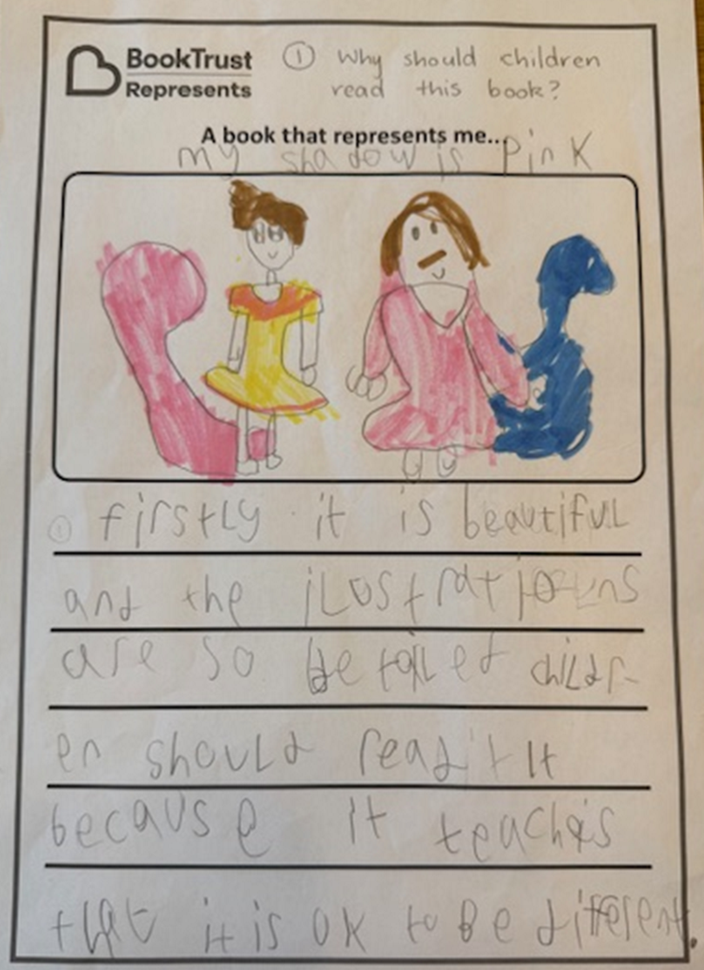 BookTrust
Represents
① Why should children
read this book?
A book that represents me...
my shadow is Pink
① firstLy it is beautifuL
and the
are so detailed childr-
en shouLd read it
because it teaches
that it is ok to Be different.